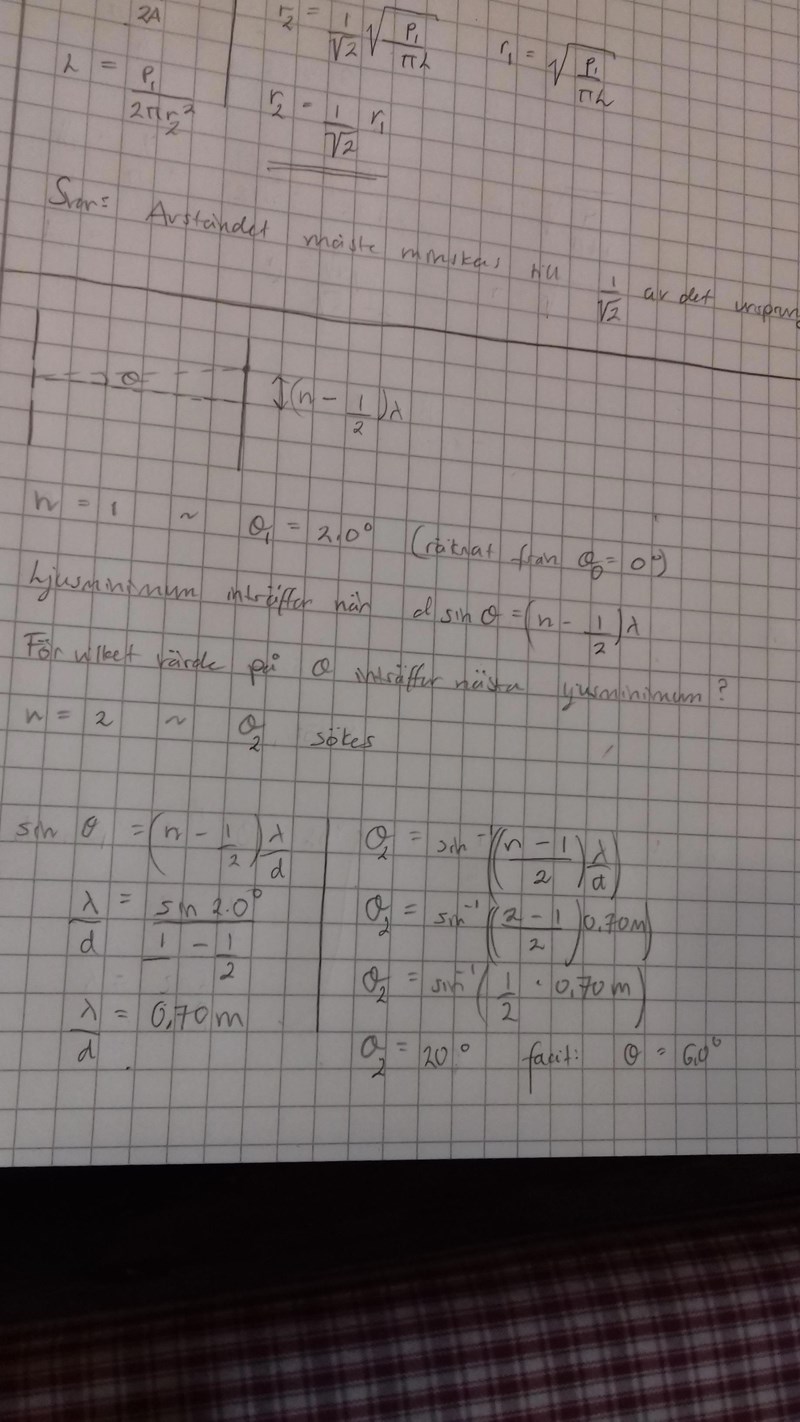 2A
r₂ = 1/√2 √(P₁/πL)
r₁ = √(P₁/πL)
L = P₁/(2πr₂²)
r₂ = 1/√2 r₁
Svar: Avståndet måste minskas till 1/√2 av det ursprun
θ
↕(n - 1/2)λ
n = 1 ~ θ₁ = 2,0° (räknat från θ₀ = 0°)
Ljusminimum inträffar när d sin θ = (n - 1/2)λ
För vilket värde på θ inträffar nästa ljusminimum?
n = 2 ~ θ₂ sökes
sin θ = (n - 1/2) λ/d
λ/d = sin 2.0°/(1 - 1/2)
λ/d = 0,70 m
θ₂ = sin⁻¹(((n - 1)/2) λ/d)
θ₂ = sin⁻¹(((2 - 1)/2) 0,70 m)
θ₂ = sin⁻¹(1/2 · 0,70 m)
θ₂ = 20° facit: θ = 6,0°